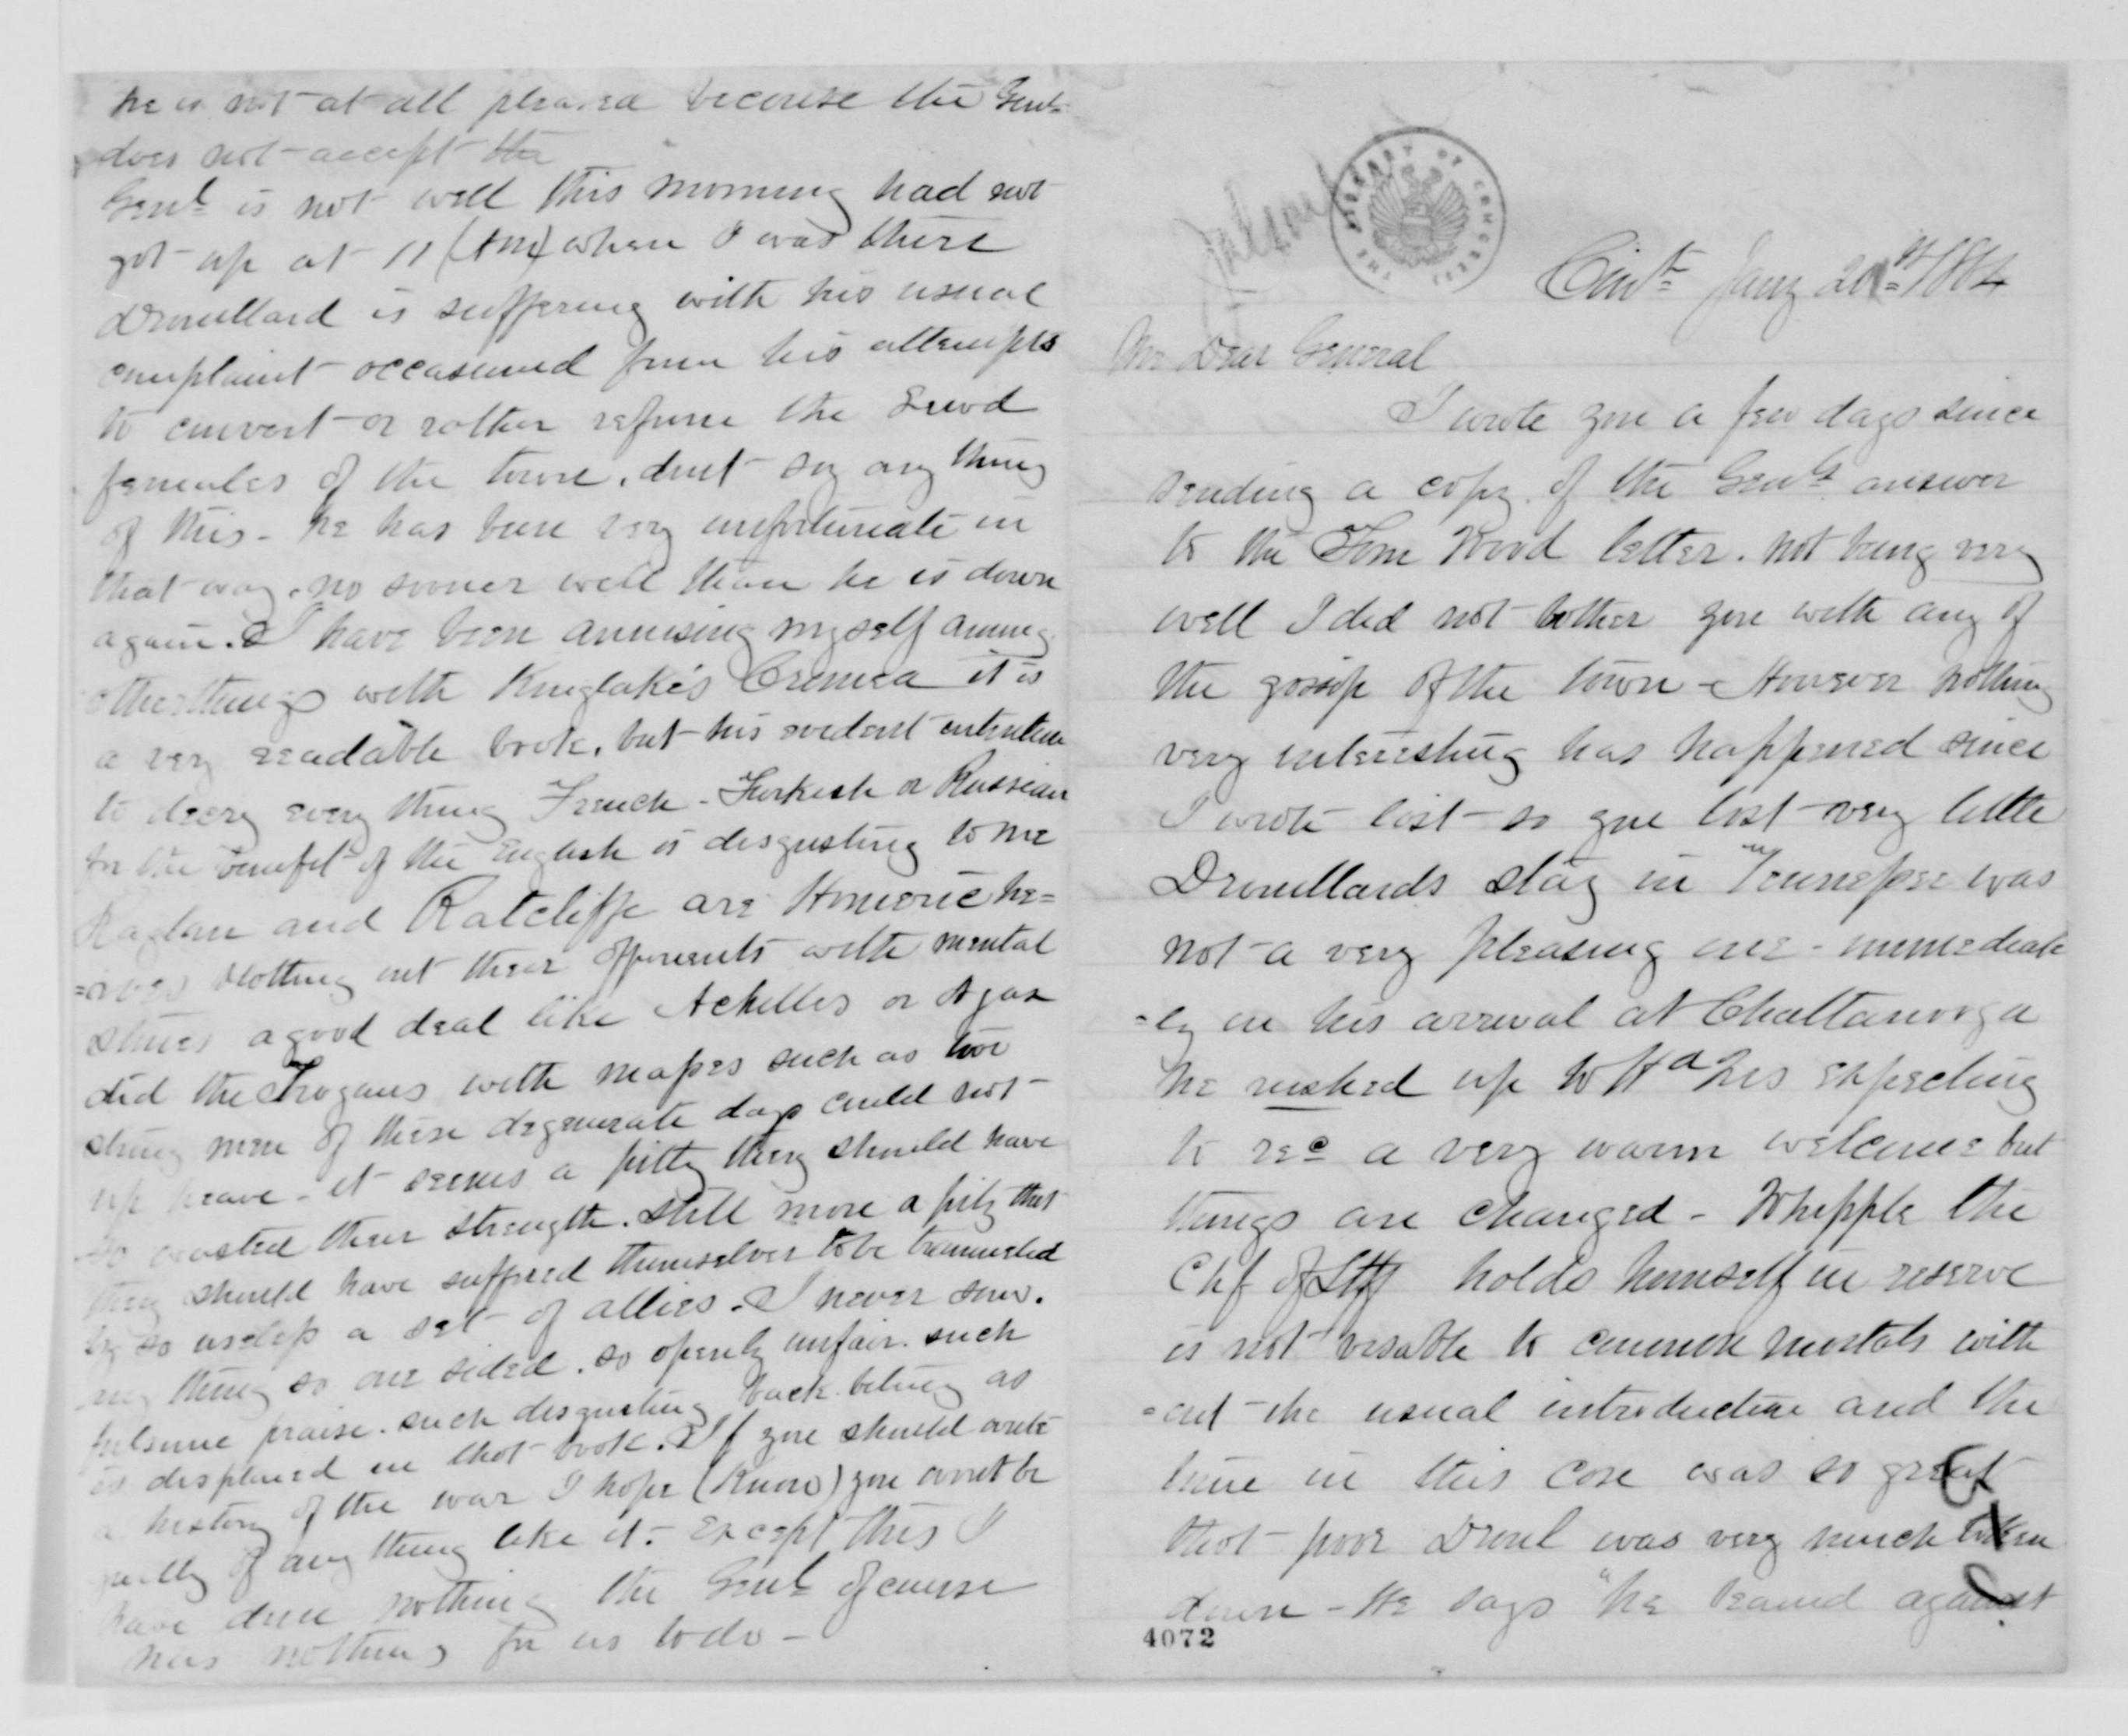 he is not at all pleased because the Genl
does not accept the
Genl is not well this morning had not
got up at 11 (AM) when I was there
Drouillard is suffering with his usual
complaint occasioned from his attempts
to convert or rather reform the lewd
females of the town. dont say any thing
of this - he has been very unfortunate in
that way. no sooner well than he is down
again. I have been amusing myself among
other things with Kinglake's Crimea it is
a very readable book, but his evident intention
to decry every thing French - Turkish or Russian
for the benefit of the English is disgusting to me
Raglan and Ratcliffe are Homeric he=
=roes blotting out their opponents with mental
stones a good deal like Achilles or Ajax
did the Trojans with masses such as two
strong men of these degenerate days could not
up heave - it seems a pitty they should have
so wasted their strength. still more a pity that
they should have suffered themselves to be trammeled
by so useless a set of allies. I never saw
any thing so one sided. so openly unfair. such
fulsome praise. such disgusting back biting as
is displayed in that book. If you should write
a history of the war I hope (Know) you wont be
guilty of any thing like it. - Except this I
have done nothing the Genl of course
has nothing for us to do -
Cint Jany 20th 1864
My Dear General
I wrote you a few days since
sending a copy of the Genls answer
to the Wood letter. not being very
well I did not bother you with any of
the gossip of the town - However nothing
very interesting has happened since
I wrote last - so you lost very little
Drouillards stay in Tennessee was
not a very pleasing one - immediate
=ly on his arrival at Chattanooga
he rushed up to Hd Qrs expecting
to rec a very warm welcome but
things are changed - Whipple the
Chf of Stff holds himself in reserve
is not visable to common mortals with
=out the usual introduction and the
time in this case was so great
that poor Drouil was very much taken
down - He says "he leaned against
4072
THE LIBRARY OF CONGRESS